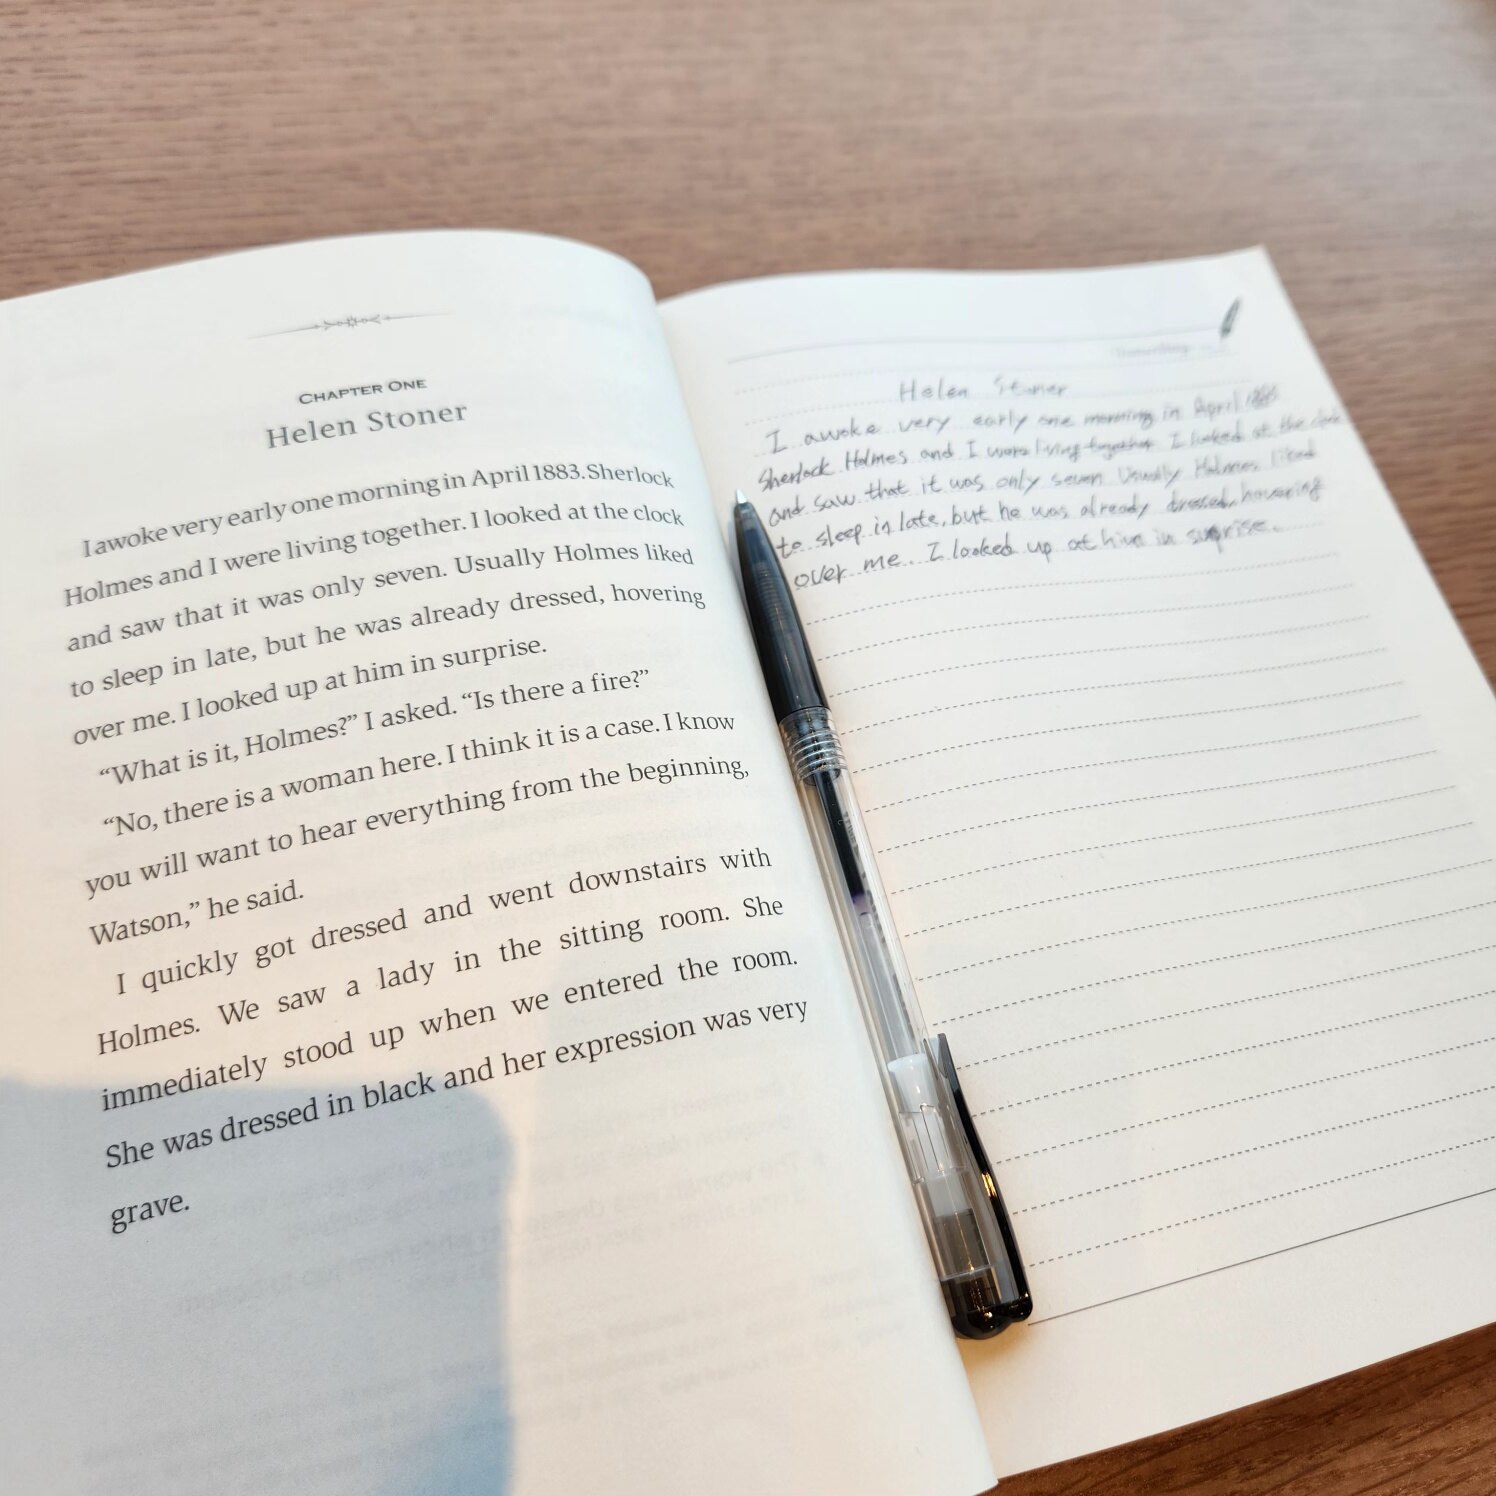 CHAPTER ONE
Helen Stoner
I awoke very early one morning in April 1883. Sherlock
Holmes and I were living together. I looked at the clock
and saw that it was only seven. Usually Holmes liked
to sleep in late, but he was already dressed, hovering
over me. I looked up at him in surprise.
“What is it, Holmes?” I asked. “Is there a fire?”
“No, there is a woman here. I think it is a case. I know
you will want to hear everything from the beginning,
Watson,” he said.
I quickly got dressed and went downstairs with
Holmes. We saw a lady in the sitting room. She
immediately stood up when we entered the room.
She was dressed in black and her expression was very
grave.
Helen Stoner
I awoke very early one morning in April
Sherlock Holmes and I were living together I looked at the
and saw that it was only seven Usually Holmes liked
to sleep in late, but he was already dressed, hovering
over me. I looked up at him in surprise.